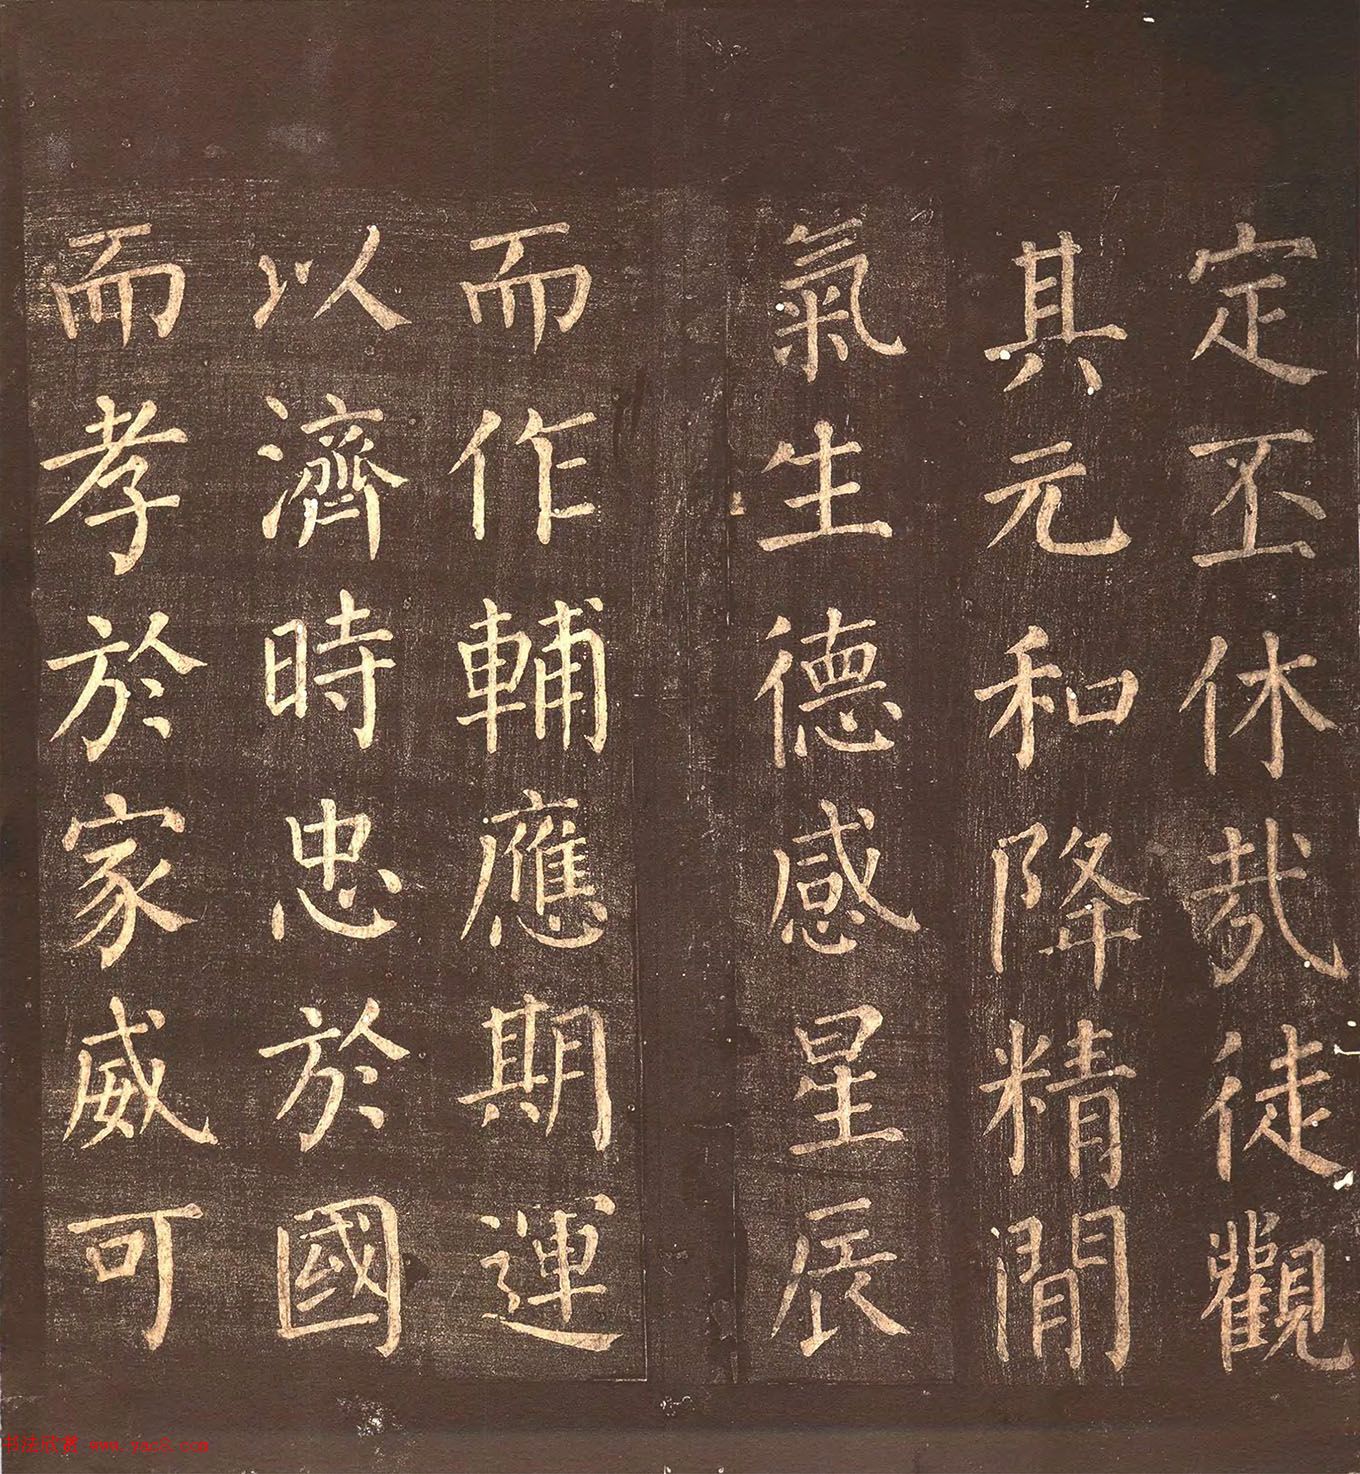 定丕休哉徒觀
其元和降精閒
氣生德感星辰
而作輔應期運
以濟時忠於國
而孝於家威可
书法欣赏 www.yac8.com